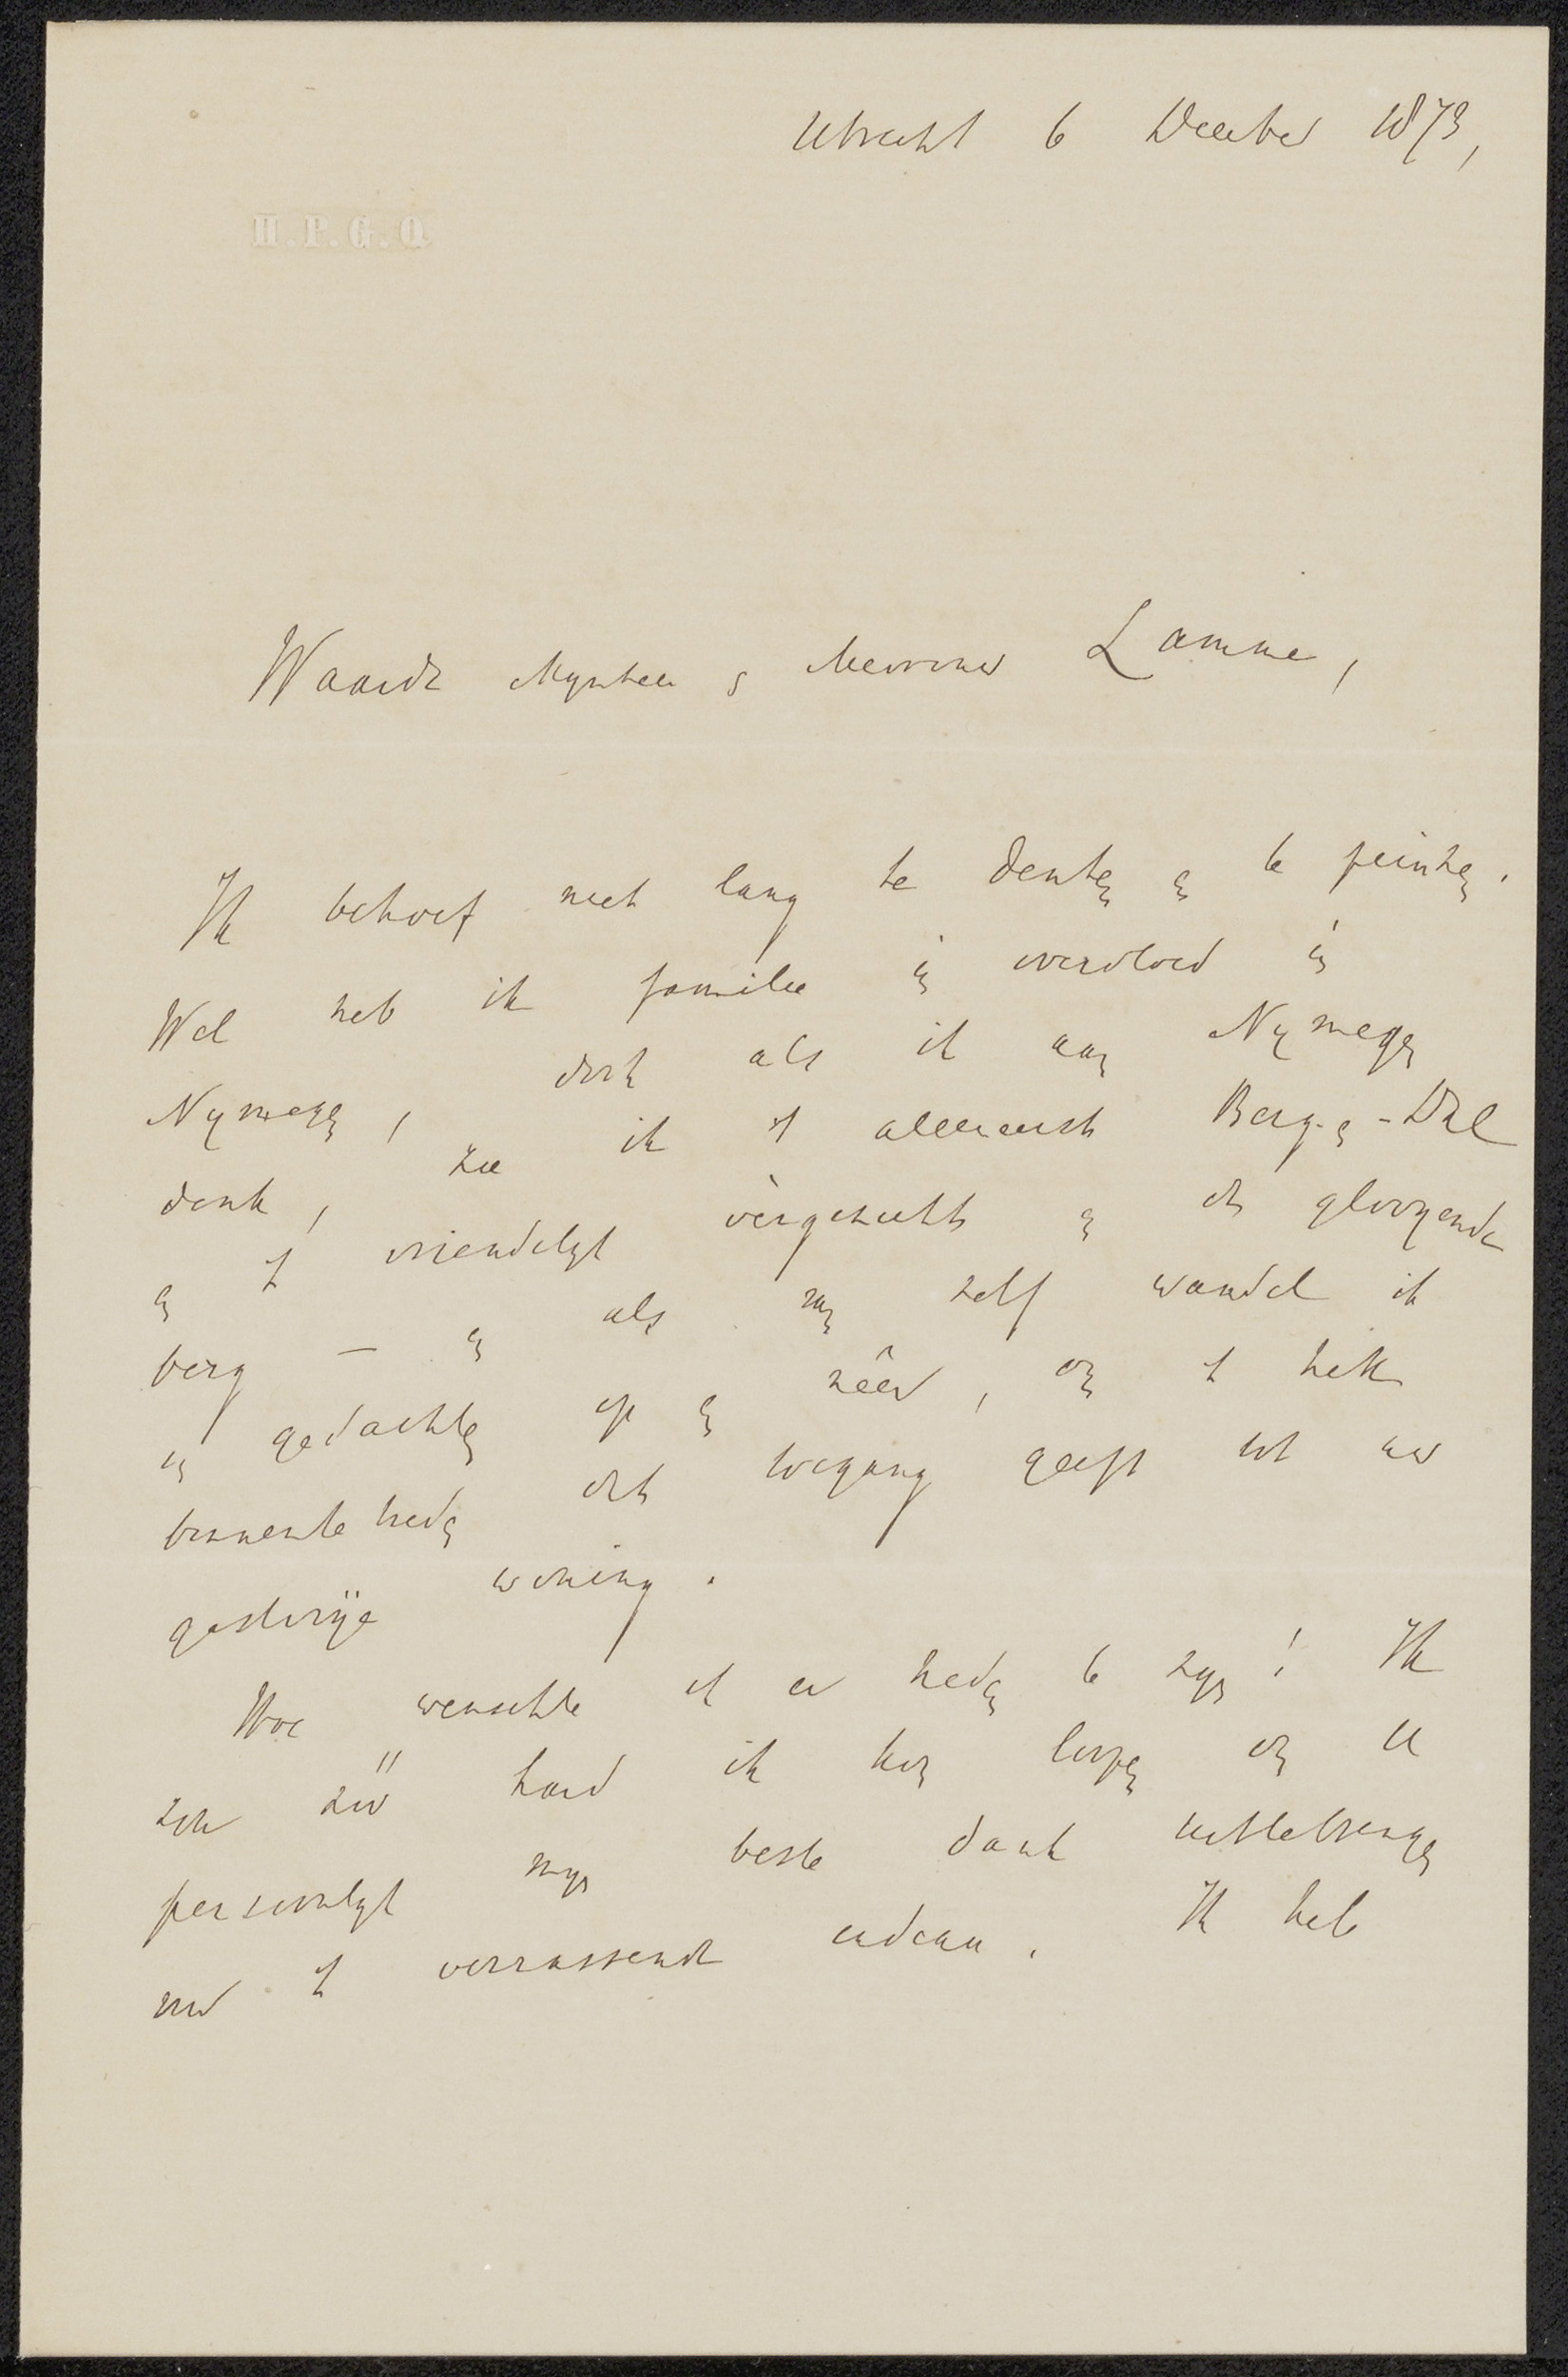 Utrecht 6 December 1873,
H.P.G.Q.
Waarde Mynheer en Mevrouw Lamme,
Ik behoef niet lang te denken en te peinzen.
Wel heb ik familie in overvloed in
Nymegen, doch als ik aan Nymegen
denk, zie ik 't allereerst Berg-en-Dal
en 't vriendelyk vergezicht en de gloeyende
berg — en als van zelf wandel ik
in gedachten op en neêr, om 't hek
binnentetreden dat toegang geeft tot uw
gastvrije woning.
Hoe wenschte ik er heden te zyn! Ik
zou zoo hard ik kon loopen om U
persoonlyk myn beste dank uittebrengen
voor 't verrassende cadeau. Ik heb